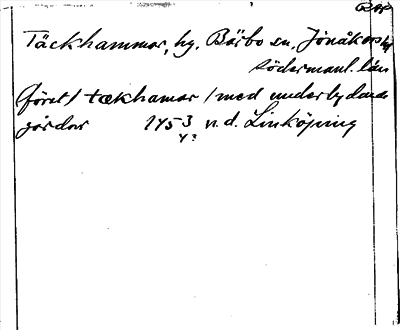 RAP
Täckhammar, hg, Bärbo sn, Jönåkers hd
södermanl. län
(föret / tækhamar / med underlydande
gårdar 1453 n.d. Linköping
4?